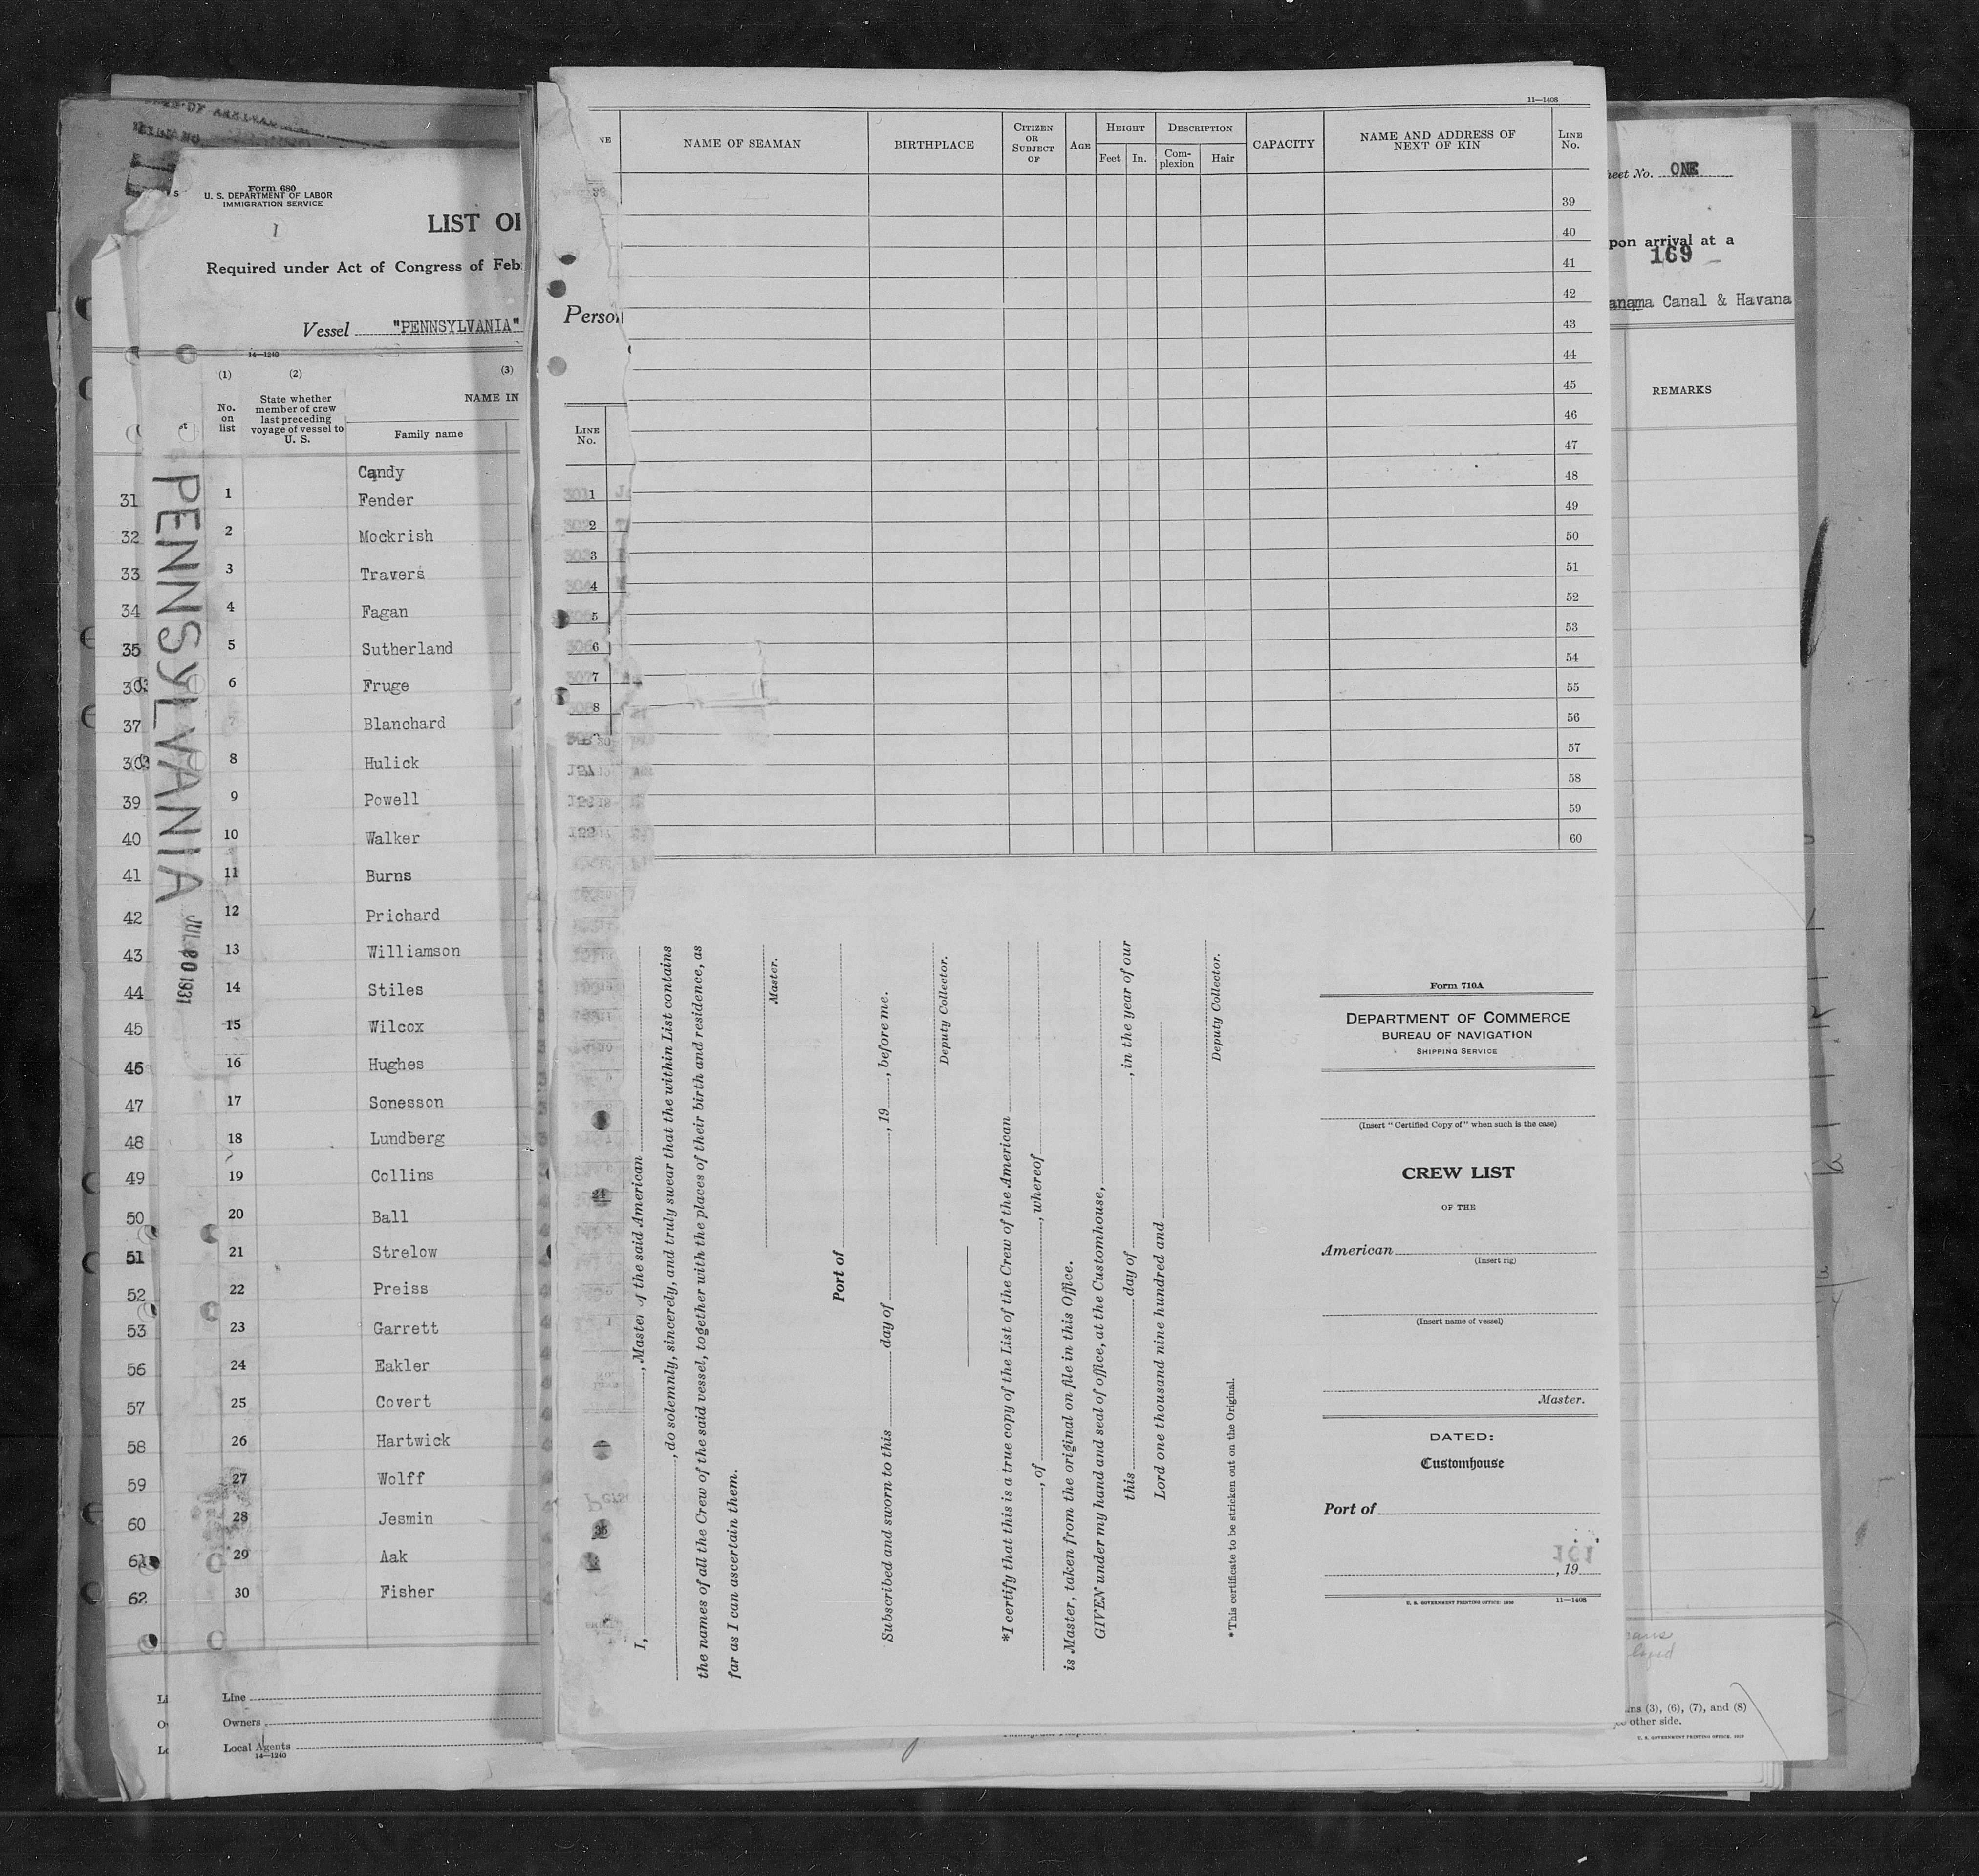 Form 680
U. S. DEPARTMENT OF LABOR
IMMIGRATION SERVICE
LIST OF
Required under Act of Congress of Feb
Vessel "PENNSYLVANIA"
14—1240
(1) (2) (3)
No. on list
State whether member of crew last preceding voyage of vessel to U. S.
NAME IN
Family name
Candy
31 1 Fender
32 2 Mockrish
33 3 Travers
34 4 Fagan
35 5 Sutherland
6 Fruge
37 Blanchard
8 Hulick
39 9 Powell
40 10 Walker
41 11 Burns
42 12 Prichard
43 13 Williamson
44 14 Stiles
45 15 Wilcox
46 16 Hughes
47 17 Sonesson
48 18 Lundberg
49 19 Collins
50 20 Ball
51 21 Strelow
52 22 Preiss
53 23 Garrett
56 24 Eakler
57 25 Covert
58 26 Hartwick
59 27 Wolff
60 28 Jesmin
61 29 Aak
62 30 Fisher
PENNSYLVANIA JUL 20 1931
Line
Owners
Local Agents
14—1240
11—1408
NAME OF SEAMAN
BIRTHPLACE
CITIZEN OR SUBJECT OF
AGE
HEIGHT
Feet In.
DESCRIPTION
Complexion Hair
CAPACITY
NAME AND ADDRESS OF NEXT OF KIN
LINE No.
39
40
41
42
43
44
45
46
47
48
49
50
51
52
53
54
55
56
57
58
59
60
Person
LINE No.
1
2
3
4
5
6
7
8
I, , Master of the said American
, do solemnly, sincerely, and truly swear that the within List contains
the names of all the Crew of the said vessel, together with the places of their birth and residence, as
far as I can ascertain them.
Master.
Port of
Subscribed and sworn to this day of , 19 , before me.
Deputy Collector.
*I certify that this is a true copy of the List of the Crew of the American
, of , whereof
is Master, taken from the original on file in this Office.
GIVEN under my hand and seal of office, at the Customhouse,
this day of , in the year of our
Lord one thousand nine hundred and
Deputy Collector.
*This certificate to be stricken out on the Original.
Form 710A
DEPARTMENT OF COMMERCE
BUREAU OF NAVIGATION
SHIPPING SERVICE
(Insert "Certified Copy of" when such is the case)
CREW LIST
OF THE
American
(Insert rig)
(Insert name of vessel)
Master.
DATED:
Customhouse
Port of
, 19
U. S. GOVERNMENT PRINTING OFFICE: 1930 11—1408
heet No. ONE
pon arrival at a
169
anama Canal & Havana
REMARKS
mns (3), (6), (7), and (8)
other side.
U. S. GOVERNMENT PRINTING OFFICE, 1929